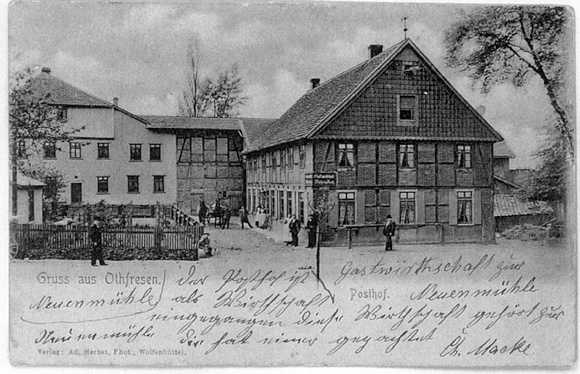 Gruss aus Othfresen.
Posthof.
Neuenmühle
der Posthof ist Gastwirthschaft zur
als Wirthschaft Neuenmühle
eingegangen diese Wirthschaft gehört zur
Neuenmühle
der hat einer gepachtet
Ch. Macke
Verlag: Ad. Herbst, Phot., Wolfenbüttel.